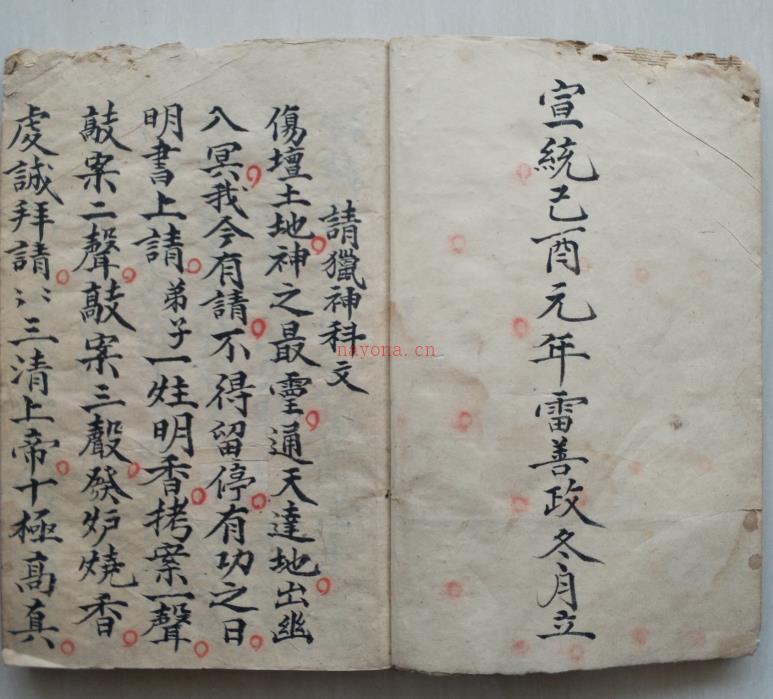 宣統己酉元年雷善政冬月立
請獵神科文
傷壇土地神之最靈通天達地出幽
入冥我今有請不得留停有功之日
明書上請弟子一炷明香拷案一聲
敲案二聲敲案三聲發炉燒香
虔誠拜請⺀⺀三清上帝十極高真
nayona.cn